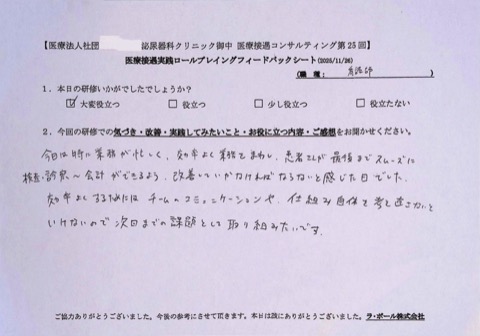 【医療法人社団 泌尿器科クリニック御中 医療接遇コンサルティング第25回】
医療接遇実践ロールプレイングフィードバックシート(2025/11/26)
(職 種: 看護師 )
1．本日の研修いかがでしたでしょうか？
☑大変役立つ □役立つ □少し役立つ □役立たない
2．今回の研修での気づき・改善・実践してみたいこと・お役に立つ内容・ご感想をお聞かせください。
今日は特に業務が忙しく、効率よく業務をまわし、患者さんが最後までスムーズに
検査・診察〜会計ができるよう、改善していかなければならないと感じた日でした。
効率よくするためには チームのコミュニケーションや、仕組み自体を考え直さないと
いけないので次回までの課題として取り組みたいです。
ご協力ありがとうございました。今後の参考にさせて頂きます。本日は誠にありがとうございました。ラ・ポール株式会社